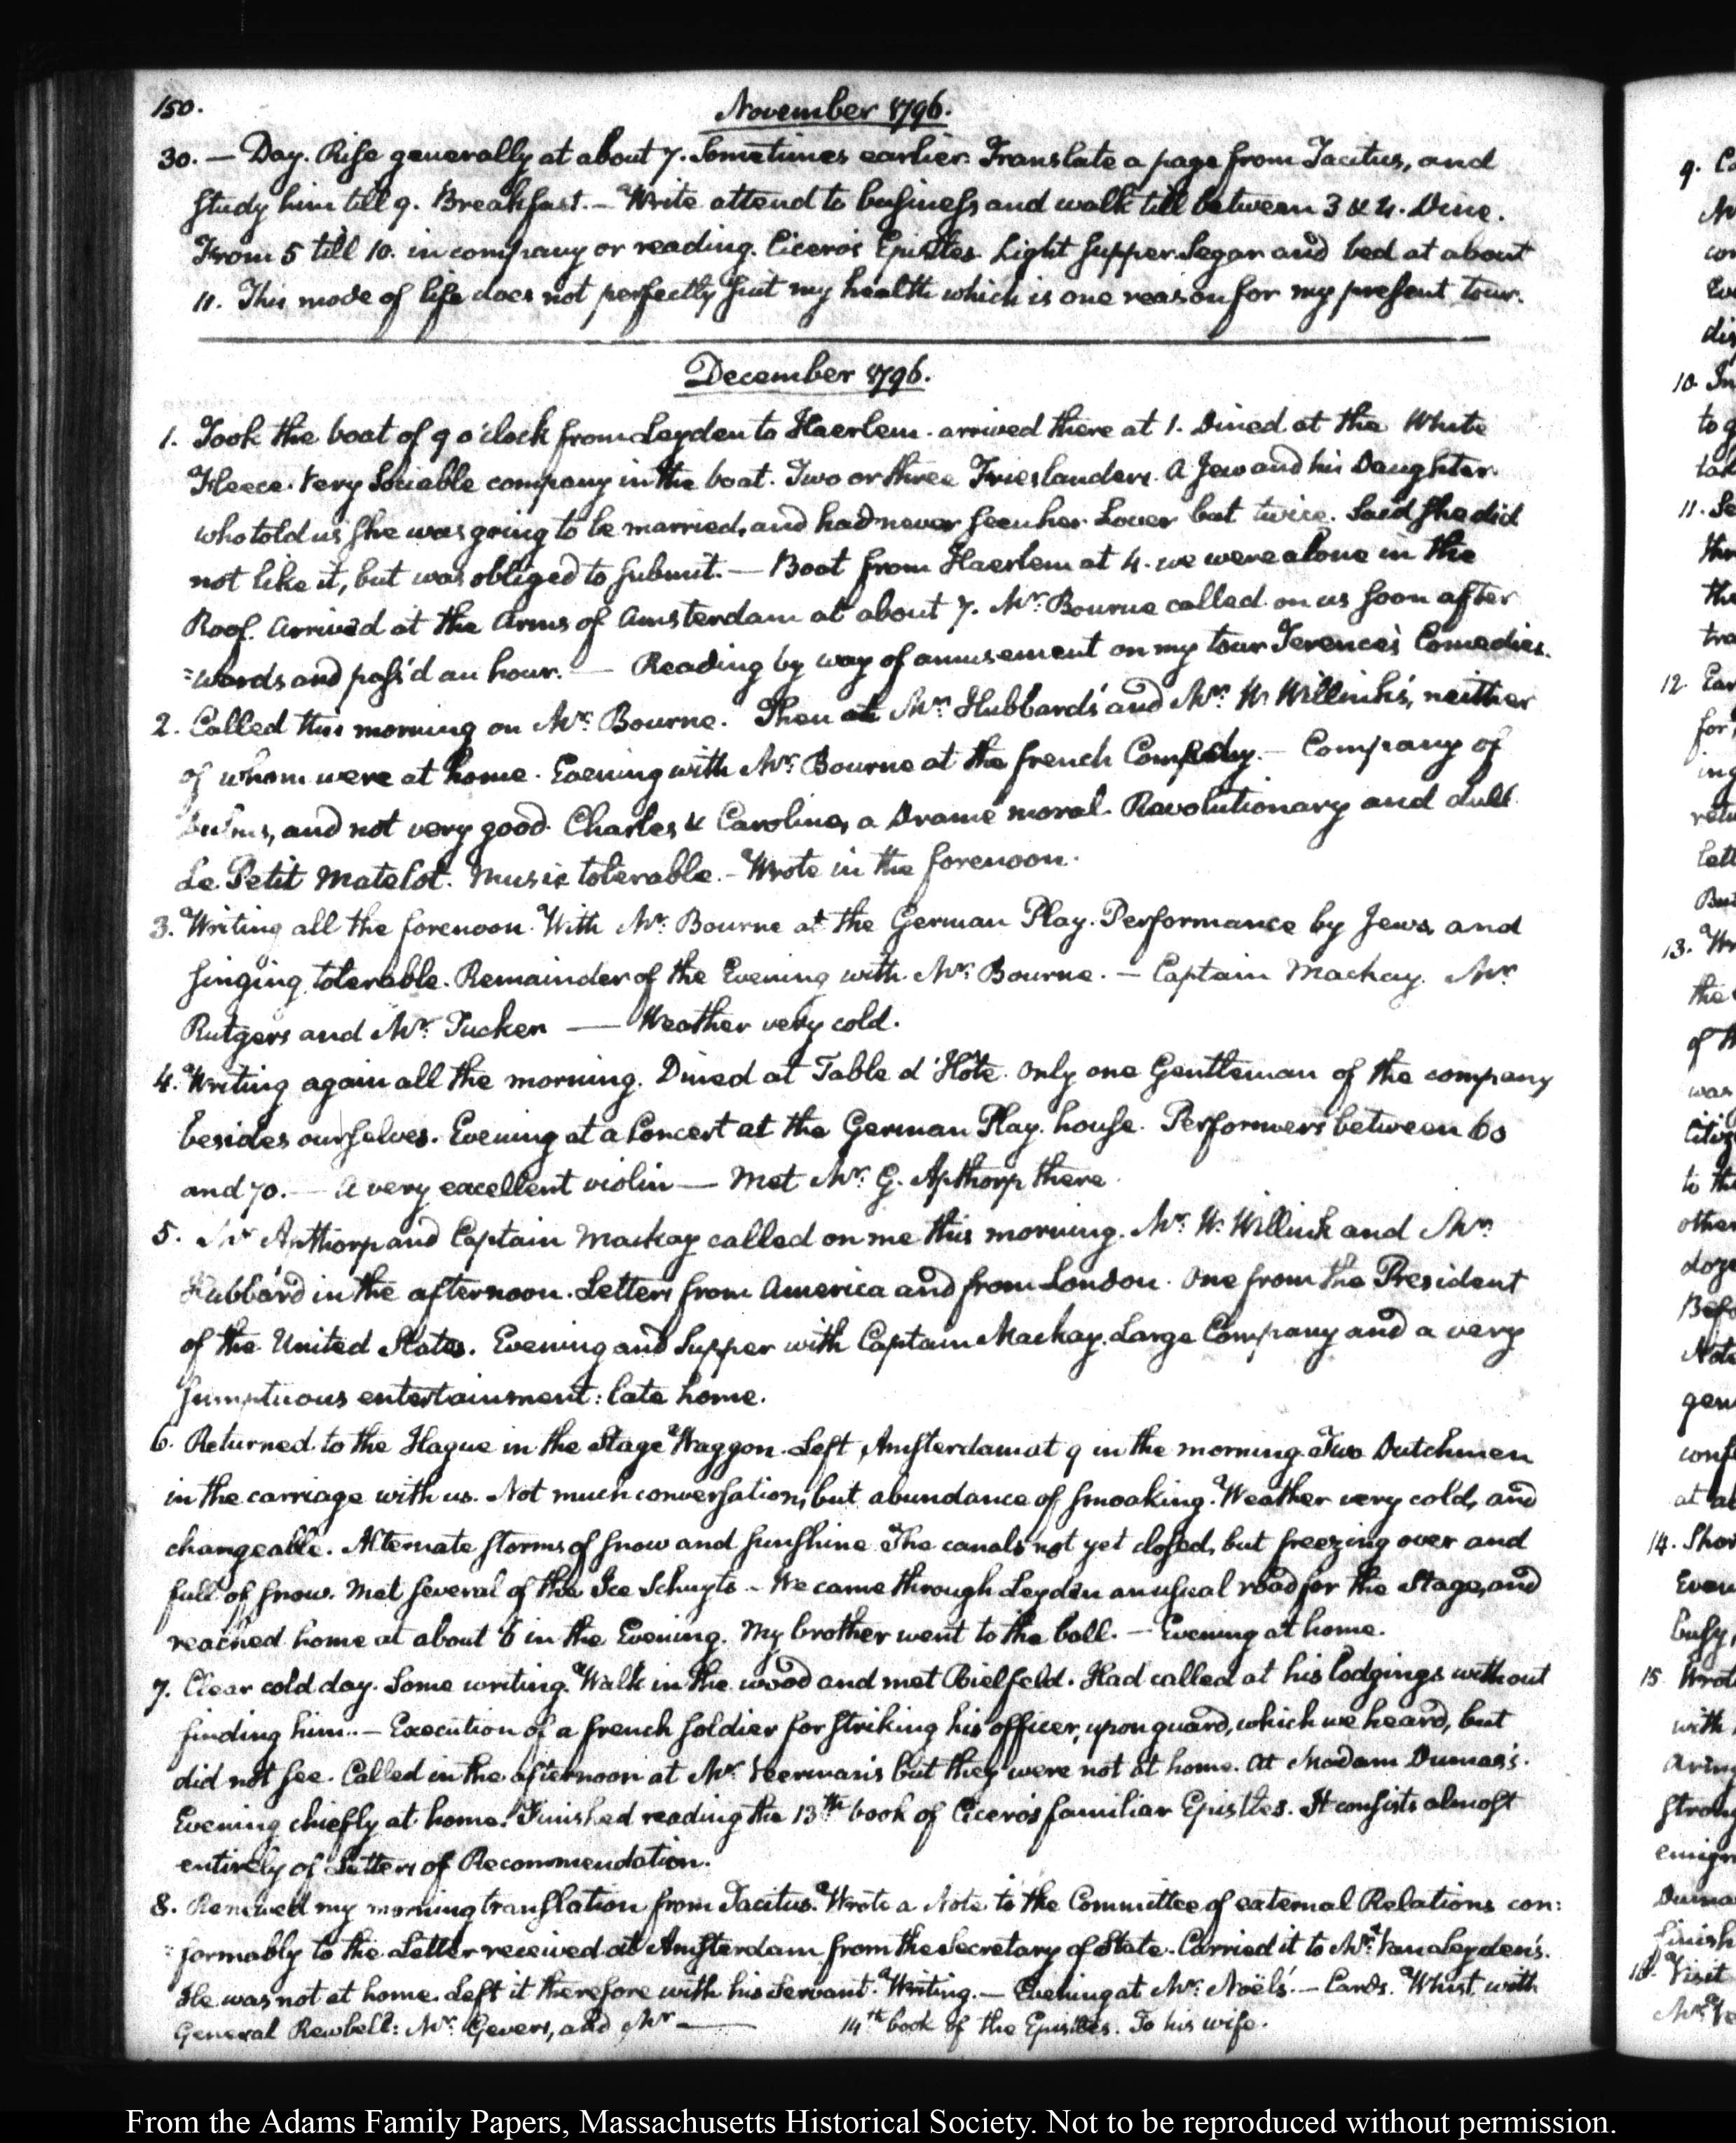 150.
November 1796.
30. — Day. Rise generally at about 7. Sometimes earlier. Translate a page from Tacitus, and
study him till 9. Breakfast. — Write attend to business and walk till between 3 & 4. Dine.
From 5 till 10. in company or reading. Cicero's Epistles. Light supper. Segar and bed at about
11. This mode of life does not perfectly suit my health which is one reason for my present tour.
December 1796.
1. Took the boat of 9 o'clock from Leyden to Haerlem. arrived there at 1. Dined at the White
Fleece. Very Sociable company in the boat. Two or three Frieslanders. A Jew and his Daughter
who told us she was going to be married, and had never seen her Lover but twice. Said she did
not like it, but was obliged to submit. — Boat from Haerlem at 4. we were alone in the
Roof. Arrived at the Arms of Amsterdam at about 7. Mr. Bourne called on us soon after
=wards and pass'd an hour. — Reading by way of amusement on my tour Terence's Comedies.
2. Called this morning on Mr. Bourne. Then at Mr. Hubbard's and Mr. W. Willink's, neither
of whom were at home. Evening with Mr. Bourne at the french Comedy. — Company of
and not very good. Charles & Caroline, a Drame moral. Revolutionary and dull.
Le Petit Matelot. Music tolerable. — Wrote in the forenoon.
3. Writing all the forenoon. With Mr. Bourne at the German Play. Performance by Jews, and
singing tolerable. Remainder of the Evening with Mr. Bourne. — Captain Mackay. Mr.
Rutgers and Mr. Tucker — Weather very cold.
4. Writing again all the morning. Dined at Table d'Hôte. only one Gentleman of the company
besides ourselves. Evening at a Concert at the German Play house. Performers between 60
and 70. — A very excellent violin — Met Mr. G. Apthorp there.
5. Mr. Apthorp and Captain Mackay called on me this morning. Mr. W. Willink and Mr.
Hubbard in the afternoon. Letters from America and from London. One from the President
of the United States. Evening and Supper with Captain Mackay. Large Company and a very
sumptuous entertainment: late home.
6. Returned to the Hague in the Stage Waggon. Left Amsterdam at 9 in the morning. Two Dutchmen
in the carriage with us. Not much conversation, but abundance of smoaking. Weather very cold, and
changeable. Alternate storms of snow and sunshine. The canals not yet closed, but freezing over and
full of snow. Met several of the Ice Schuyts — We came through Leyden an usual road for the Stage, and
reached home at about 6 in the Evening. My brother went to the ball. — Evening at home.
7. Clear cold day. Some writing. Walk in the wood and met Bielfeld. Had called at his lodgings without
finding him. — Execution of a french soldier for striking his officer, upon guard, which we heard, but
did not see. Called in the afternoon at Mr. Veerman's but they were not at home. At Madam Dumas's.
Evening chiefly at home. Finished reading the 13th book of Cicero's familiar Epistles. It consists almost
entirely of Letters of Recommendation.
8. Renewed my morning translation from Tacitus. Wrote a Note to the Committee of external Relations con:
=formably to the Letter received at Amsterdam from the Secretary of State. Carried it to Mr. Van Leyden's.
He was not at home. Left it therefore with his Servant. Writing. — Evening at Mr. Noël's. — Cards. Whist with
General Rewbell: Mr. Gevers, and Mr — 14th book of the Epistles. To his wife.
From the Adams Family Papers, Massachusetts Historical Society. Not to be reproduced without permission.